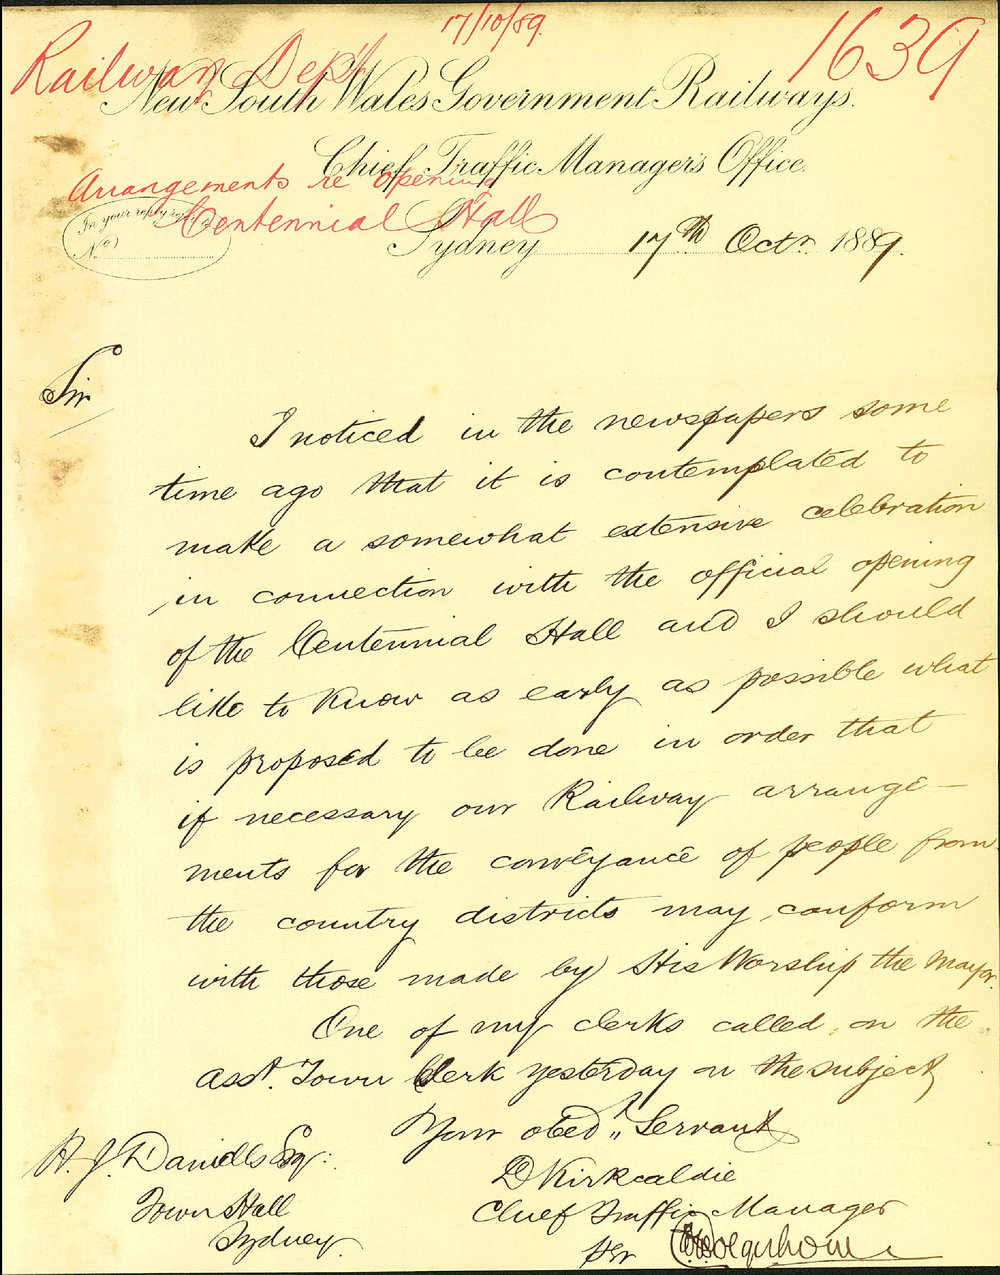 17/10/89.
1639
Railway Dep't
New South Wales Government Railways.
Chief Traffic Manager's Office.
Arrangements re opening
Centennial Hall
In your reply
No.
Sydney 17th Octr. 1889.
Sir
I noticed in the newspapers some
time ago that it is contemplated to
make a somewhat extensive celebration
in connection with the official opening
of the Centennial Hall and I should
like to know as early as possible what
is proposed to be done in order that
if necessary our Railway arrange-
ments for the conveyance of people from
the country districts may conform
with those made by His Worship the Mayor.
One of my clerks called on the
Asst. Town Clerk yesterday on the subject
Your obed" Servant
D Kirkcaldie
Chief Traffic Manager
per
H. J. Daniells Esq:
Town Hall
Sydney.